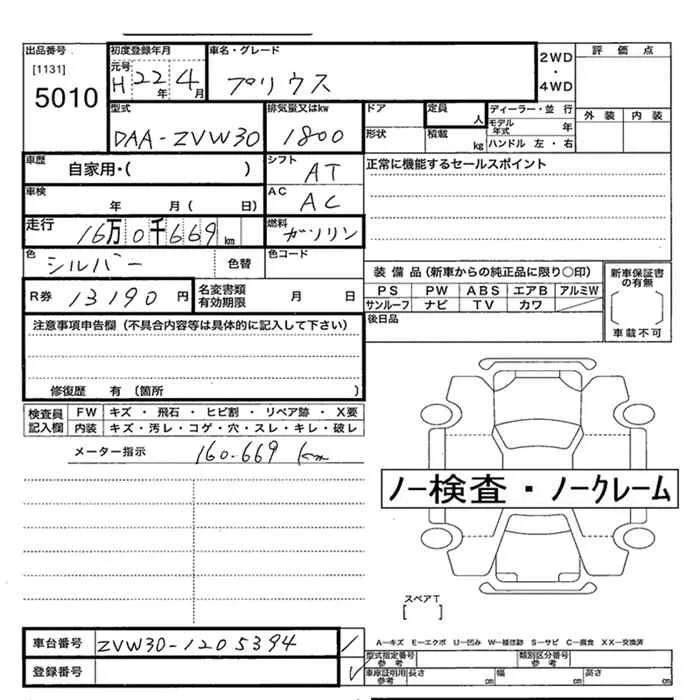 出品番号 初度登録年月 車名・グレード 2WD 評価点
[1131] 元号 H 22年 4月 プリウス ・
5010 4WD
型式 排気量又はkw ドア 定員 人 ディーラー・並行 外装 内装
DAA-ZVW30 1800 形状 積載 kg モデル年式 年
ハンドル 左・右
車歴 自家用・( ) シフト AT 正常に機能するセールスポイント
車検 年 月( 日) AC AC
走行 16万0千669km 燃料 ガソリン
色 シルバー 色替 色コード
装備品(新車からの純正品に限り○印) 新車保証書の有無
R券 13190円 名変書類有効期限 月 日 PS PW ABS エアB アルミW
サンルーフ ナビ TV カワ 車載不可
注意事項申告欄(不具合内容等は具体的に記入して下さい) 後日品
修復歴 有(箇所 )
検査員記入欄 FW キズ・飛石・ヒビ割・リペア跡・X要
内装 キズ・汚レ・コゲ・穴・スレ・キレ・破レ
メーター指示 160.669 km
ノー検査・ノークレーム
スペアT
[ ]
車台番号 ZVW30-1205394
A-キズ E-エクボ U-凹み W-補修跡 S-サビ C-腐食 XX-交換済
型式指定番号 参考 類別区分番号 参考
登録番号 車庫証明用 参考 長さ cm 幅 cm 高さ cm